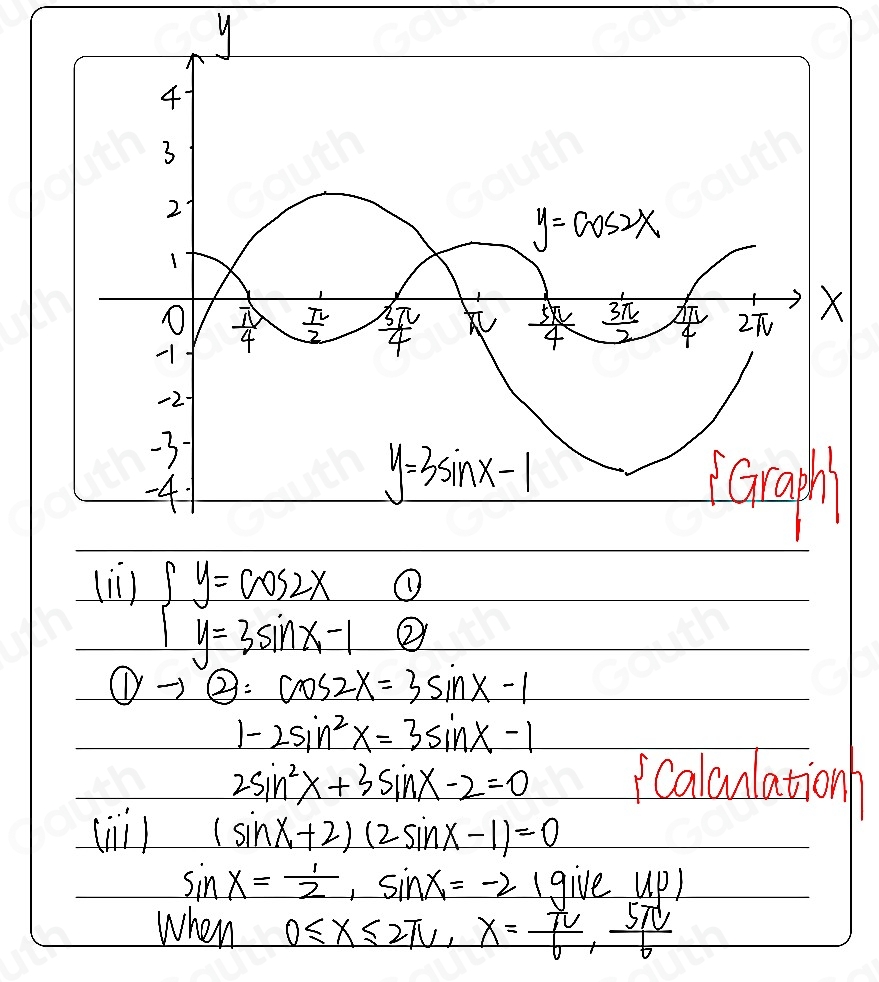 y
4
3
2
1
0
-1
-2
-3
-4
π/4 π/2 3π/4 π 5π/4 3π/2 7π/4 2π x
y=cos2x
y=3sinx-1
{Graph}
(ii) { y=cos2x ①
y=3sinx-1 ②
①→②: cos2x=3sinx-1
1-2sin²x=3sinx-1
2sin²x+3sinx-2=0
{Calculation}
(iii) (sinx+2)(2sinx-1)=0
sinx=1/2, sinx=-2 (give up)
When 0≤x≤2π, x=π/6, 5π/6
Gauth